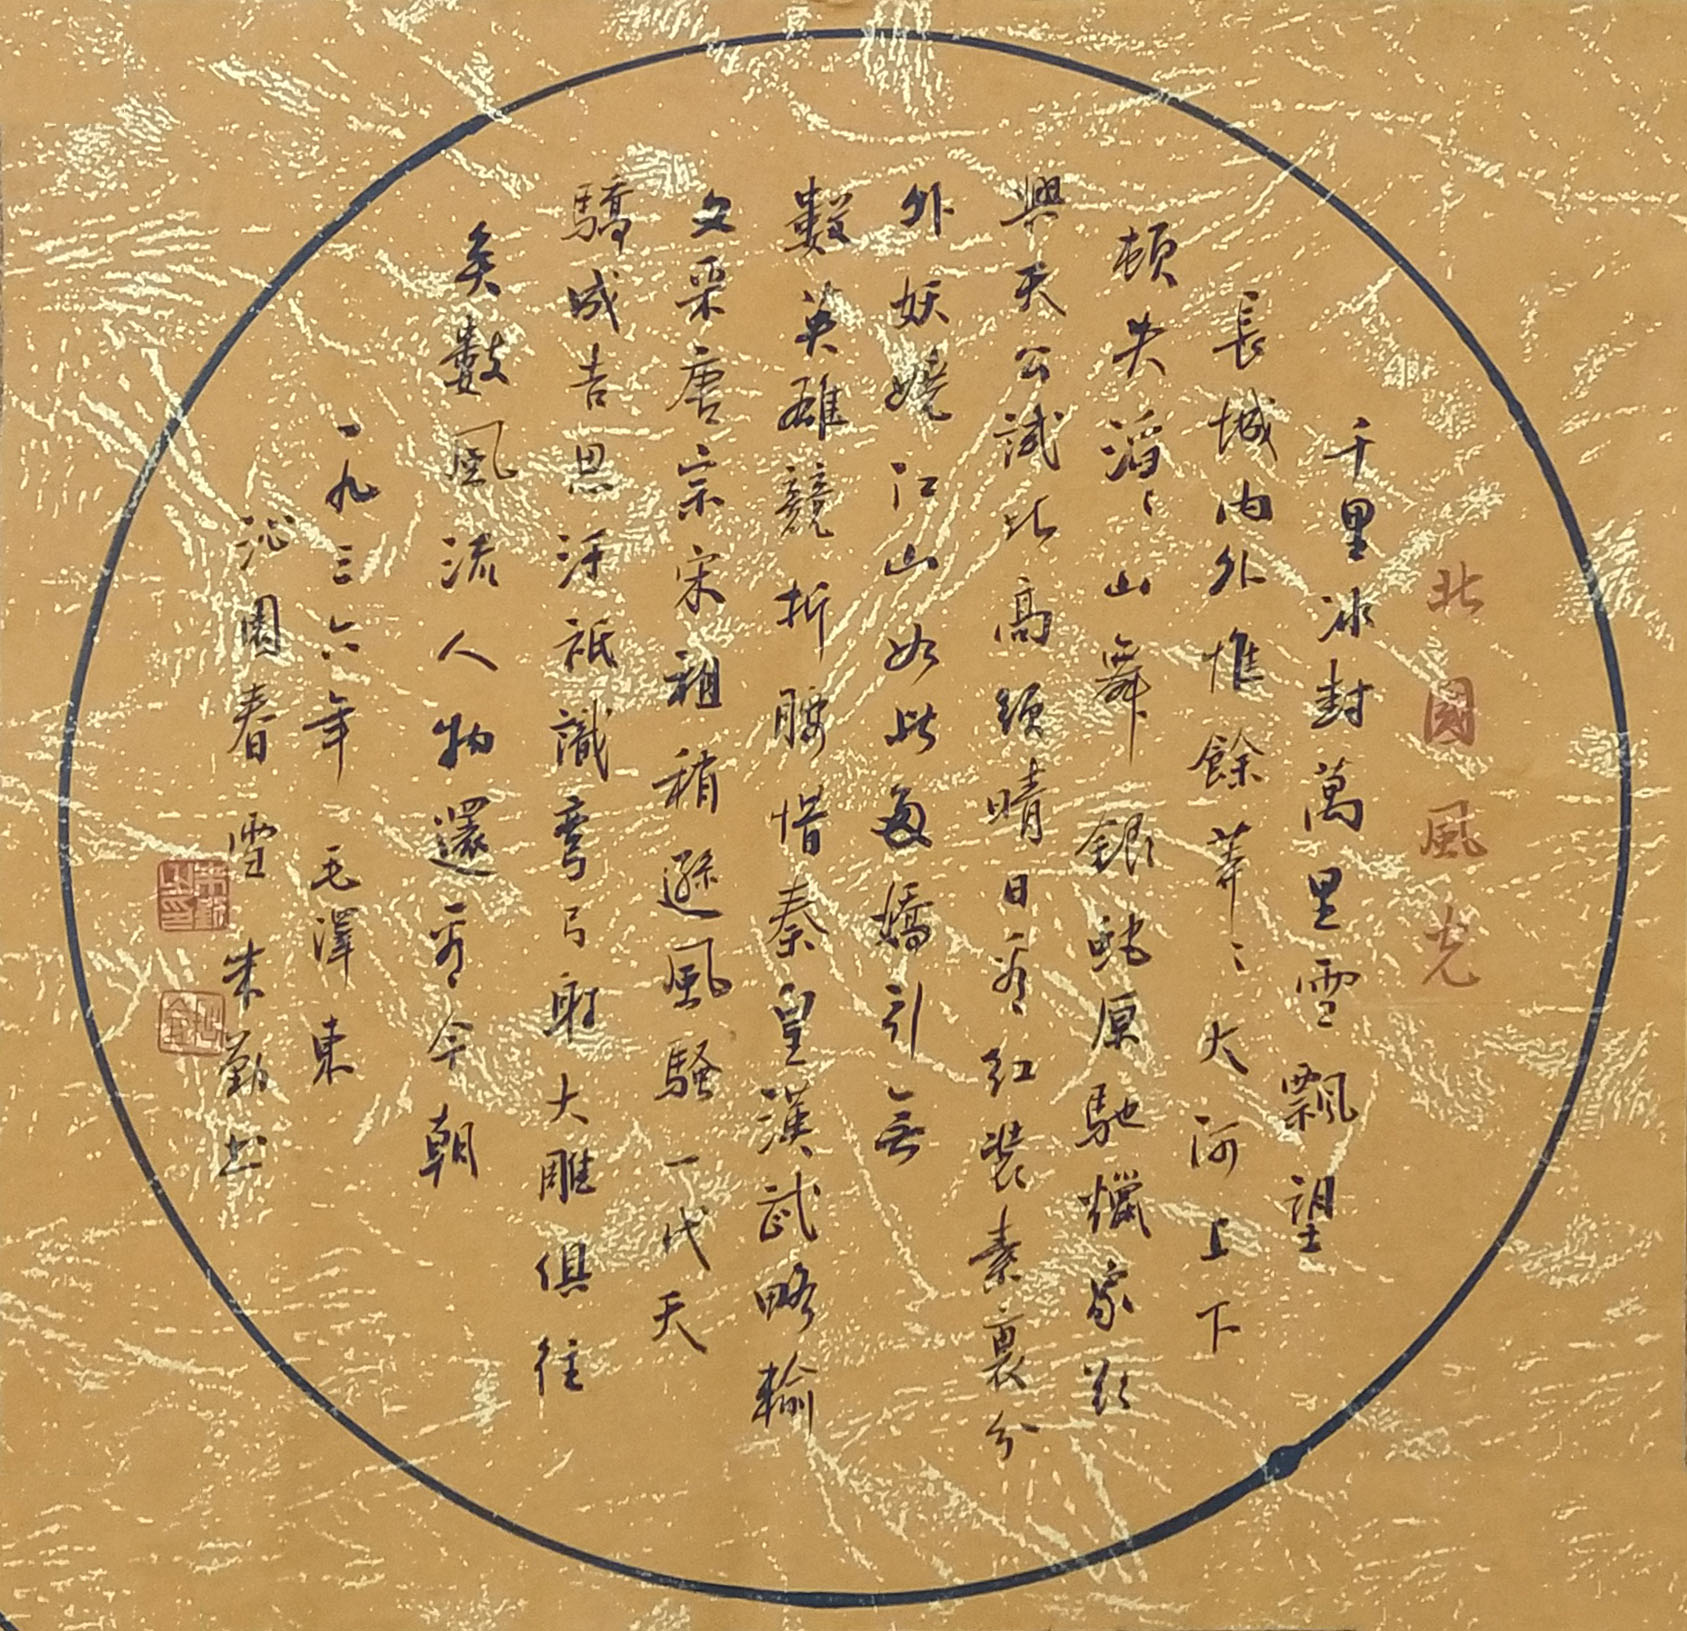 北國風光
千里冰封萬里雪飄望
長城内外惟餘莽〻大河上下
頓失滔〻山舞銀蛇原馳蠟象欲
與天公試比高須晴日看紅装素裹分
外妖嬈江山如此多嬌引無
數英雄競折腰惜秦皇漢武略輸
文采唐宗宋祖稍遜風騷一代天
驕成吉思汗祇識彎弓射大雕俱往
矣數風流人物還看今朝
一九三六年 毛澤東
沁園春 雪 朱勤書